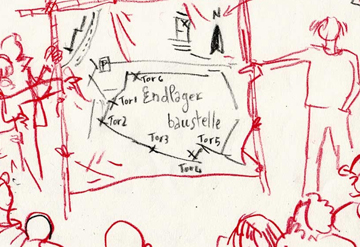 P
P
Tor 6
Endlager
Tor 1
baustelle
Tor 2
Tor 3
Tor 5